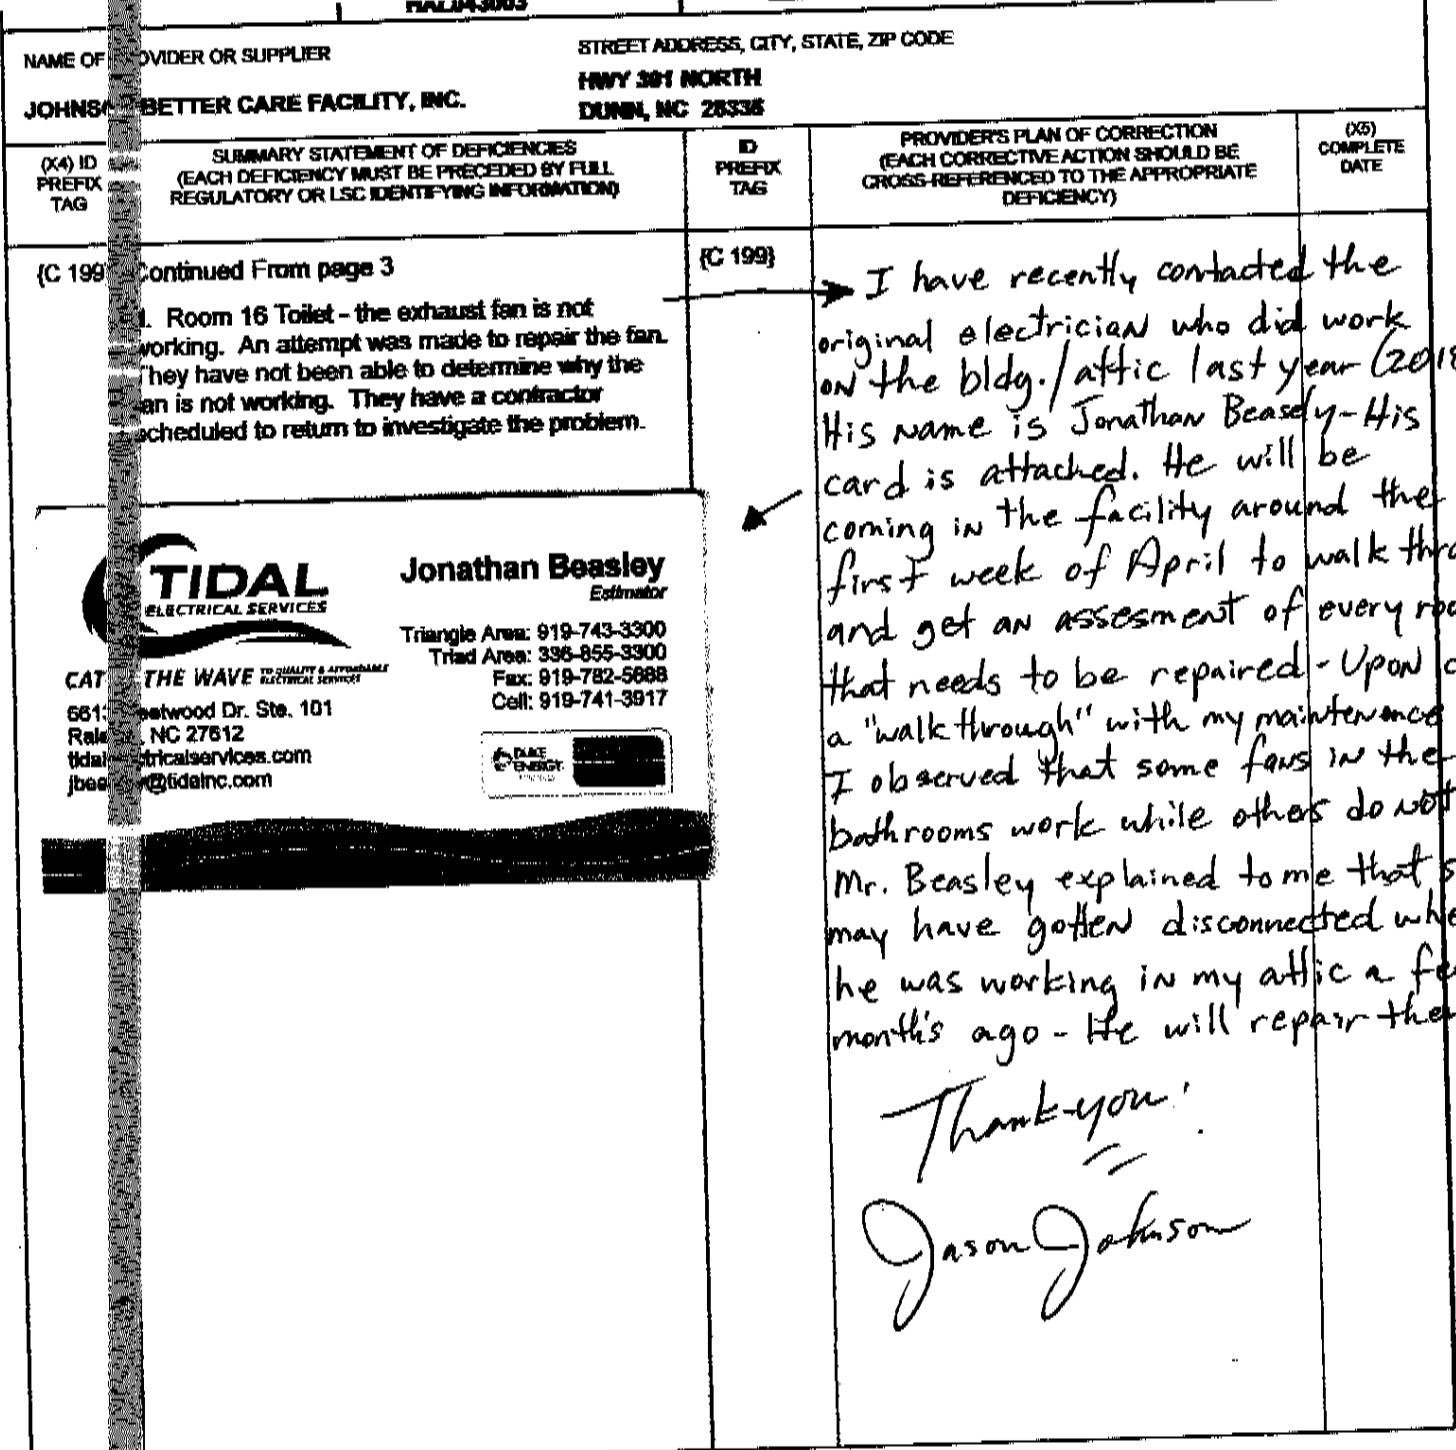 HAL043003
NAME OF OVIDER OR SUPPLIER
STREET ADDRESS, CITY, STATE, ZIP CODE
JOHNS BETTER CARE FACILITY, INC.
HWY 301 NORTH
DUNN, NC 28335
(X4) ID
PREFIX
TAG
SUMMARY STATEMENT OF DEFICIENCIES
(EACH DEFICIENCY MUST BE PRECEDED BY FULL
REGULATORY OR LSC IDENTIFYING INFORMATION)
ID
PREFIX
TAG
PROVIDER'S PLAN OF CORRECTION
(EACH CORRECTIVE ACTION SHOULD BE
CROSS-REFERENCED TO THE APPROPRIATE
DEFICIENCY)
(X5)
COMPLETE
DATE
{C 199 Continued From page 3
Room 16 Toilet - the exhaust fan is not
working. An attempt was made to repair the fan.
They have not been able to determine why the
fan is not working. They have a contractor
scheduled to return to investigate the problem.
TIDAL
ELECTRICAL SERVICES
CAT THE WAVE TO QUALITY & AFFORDABLE
ELECTRICAL SERVICES
Ste. 101
NC 27612
tidal ctricalservices.com
jbea @tidalnc.com
Jonathan Beasley
Estimator
Triangle Area: 919-743-3300
Triad Area: 336-855-3300
Fax: 919-782-5688
Cell: 919-741-3917
DUKE
ENERGY
{C 199}
I have recently contacted the
original electrician who did work
on the bldg./attic last year (2018
His name is Jonathan Beasely-His
card is attached. He will be
coming in the facility around the
first week of April to walk thro
and get an assesment of every roo
that needs to be repaired - Upon
a "walk through" with my maintenance
I observed that some fans in the
bathrooms work while others do not
Mr. Beasley explained to me that s
may have gotten disconnected whe
he was working in my attic a fe
month's ago - He will repair the
Thank-you!
Jason Johnson